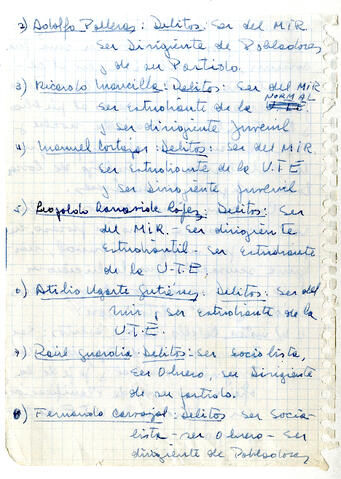 2) Adolfo Palleras: Delitos: Ser del MIR
Ser Dirigente de Pobladores
y de su Partido.
3) Ricardo Mancilla: Delitos: Ser del MIR
NORMAL
ser estudiante de la UTE
y ser dirigente Juvenil
4) Manuel Cortazar: Delitos: Ser del MIR
Ser Estudiante de la U.T.E
y Ser Dirigente, Juvenil
5) Leopoldo Benavide : Delitos: Ser
del MiR.- Ser dirigiente
Estudiantil - Ser Estudiante
de la U-TE.
6) Atilio Ugarte Gutiérrez: Delitos: Ser del
Mir, ser Estudiante de la
U.T.E.
7) Raúl Guardia Delitos: Ser Socialista,
Ser Obrero, Ser Dirigente
de su partido.
8) Fernando Carvajal: Delitos Ser Socia-
lista - ser Obrero - Ser
dirigiente de Pobladores